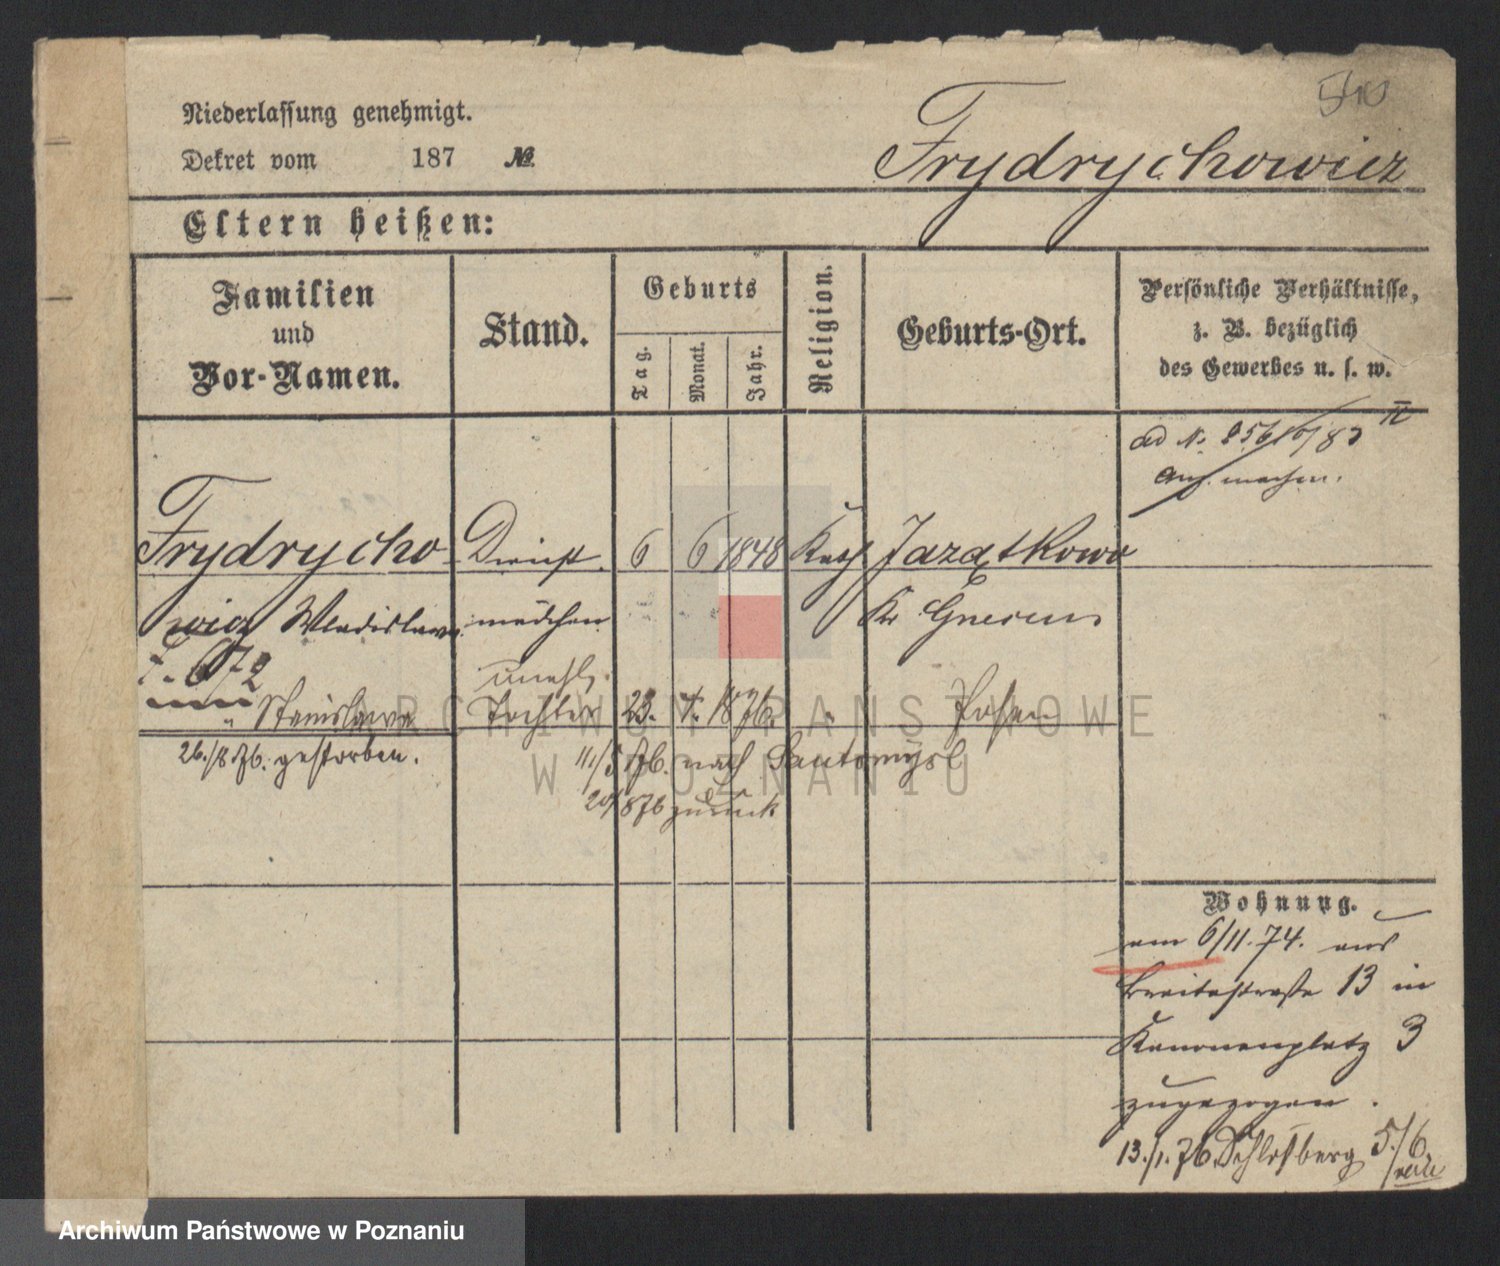 Niederlassung genehmigt.
Dekret vom 187 №
Frydrychowicz
Eltern heißen:
Familien und Vor-Namen.
Stand.
Geburts
Tag.
Monat.
Jahr.
Religion.
Geburts-Ort.
Persönliche Verhältnisse,
z. B. bezüglich
des Gewerbes u. s. w.
ad N.
Frydrycho Dienst 6 6 1848 Kath Jazątkowo
wicz Wladislawa mädchen Kr Gnesen
672
unehl.
" Stanislawa Tochter 23. 4. 1876. " Posen
26./8.76. gestorben. 11./5 76. nach Santomysl
20/876 zurück
Wohnung.
am 6/11.74. aus
Breitestraße 13 in
Kanonenplatz 3
zugezogen.
13./1.76. Schloßberg 5./6
ARCHIWUM PAŃSTWOWE
W POZNANIU
Archiwum Państwowe w Poznaniu